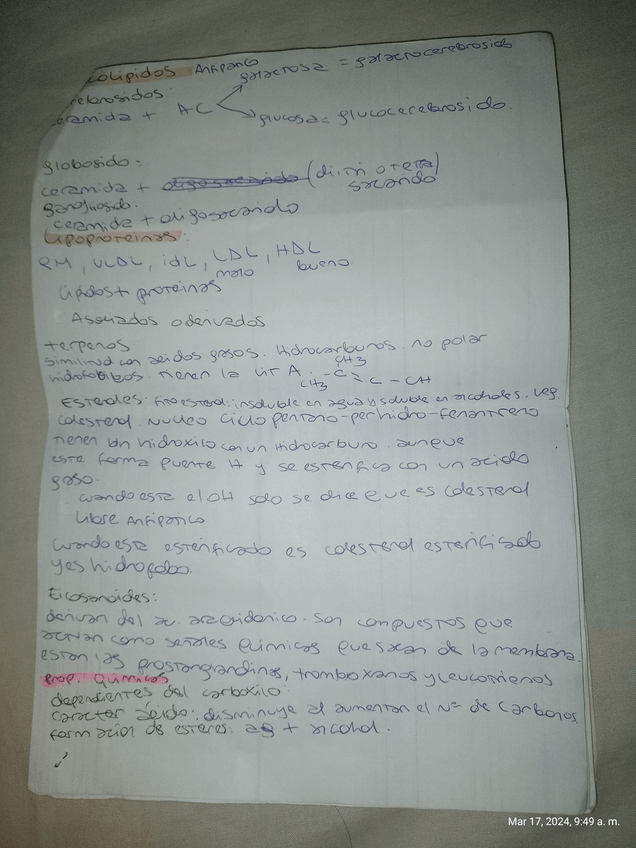 colipidos Anfipatico
galactosa = galactocerebrosido
rebrosidos:
eramida + AC
glucosa = glucocerebrosido.
globosido:
ceramida + (di, tri o tetra)
sacarido
Gangliosido:
ceramida + oligosacarido
Lipoproteinas:
QM, VLDL, idL, LDL, HDL
malo bueno
Lipidos + proteinas
Asociados o derivados
terpenos
similitud con acidos grasos. Hidrocarburos. no polar
CH3
hidrofobicos. tienen la vit A. - C = C - CH
CH3
Esteroles: Fitoesterol: insoluble en agua y soluble en alcoholes. veg.
colesterol. Nucleo Ciclo pentano-perhidro-fenantreno
tienen un hidroxilo con un Hidrocarburo. aunque
este forma puente H y se esterifica con un acido
graso.
cuando esta el OH solo se dice que es colesterol
libre Anfipatico
cuando esta esterificado es colesterol esterificado
y es hidrofobo.
Eicosanoides:
derivan del ac. araquidonico. Son compuestos que
actuan como señales quimicas que sacan de la membrana.
estan las prostangrandinas, tromboxanos y leucotrienos
prop. quimicas
dependientes del carboxilo:
Caracter ácido: disminuye al aumentar el Nº de carbonos
formacion de esteres: ag + alcohol.